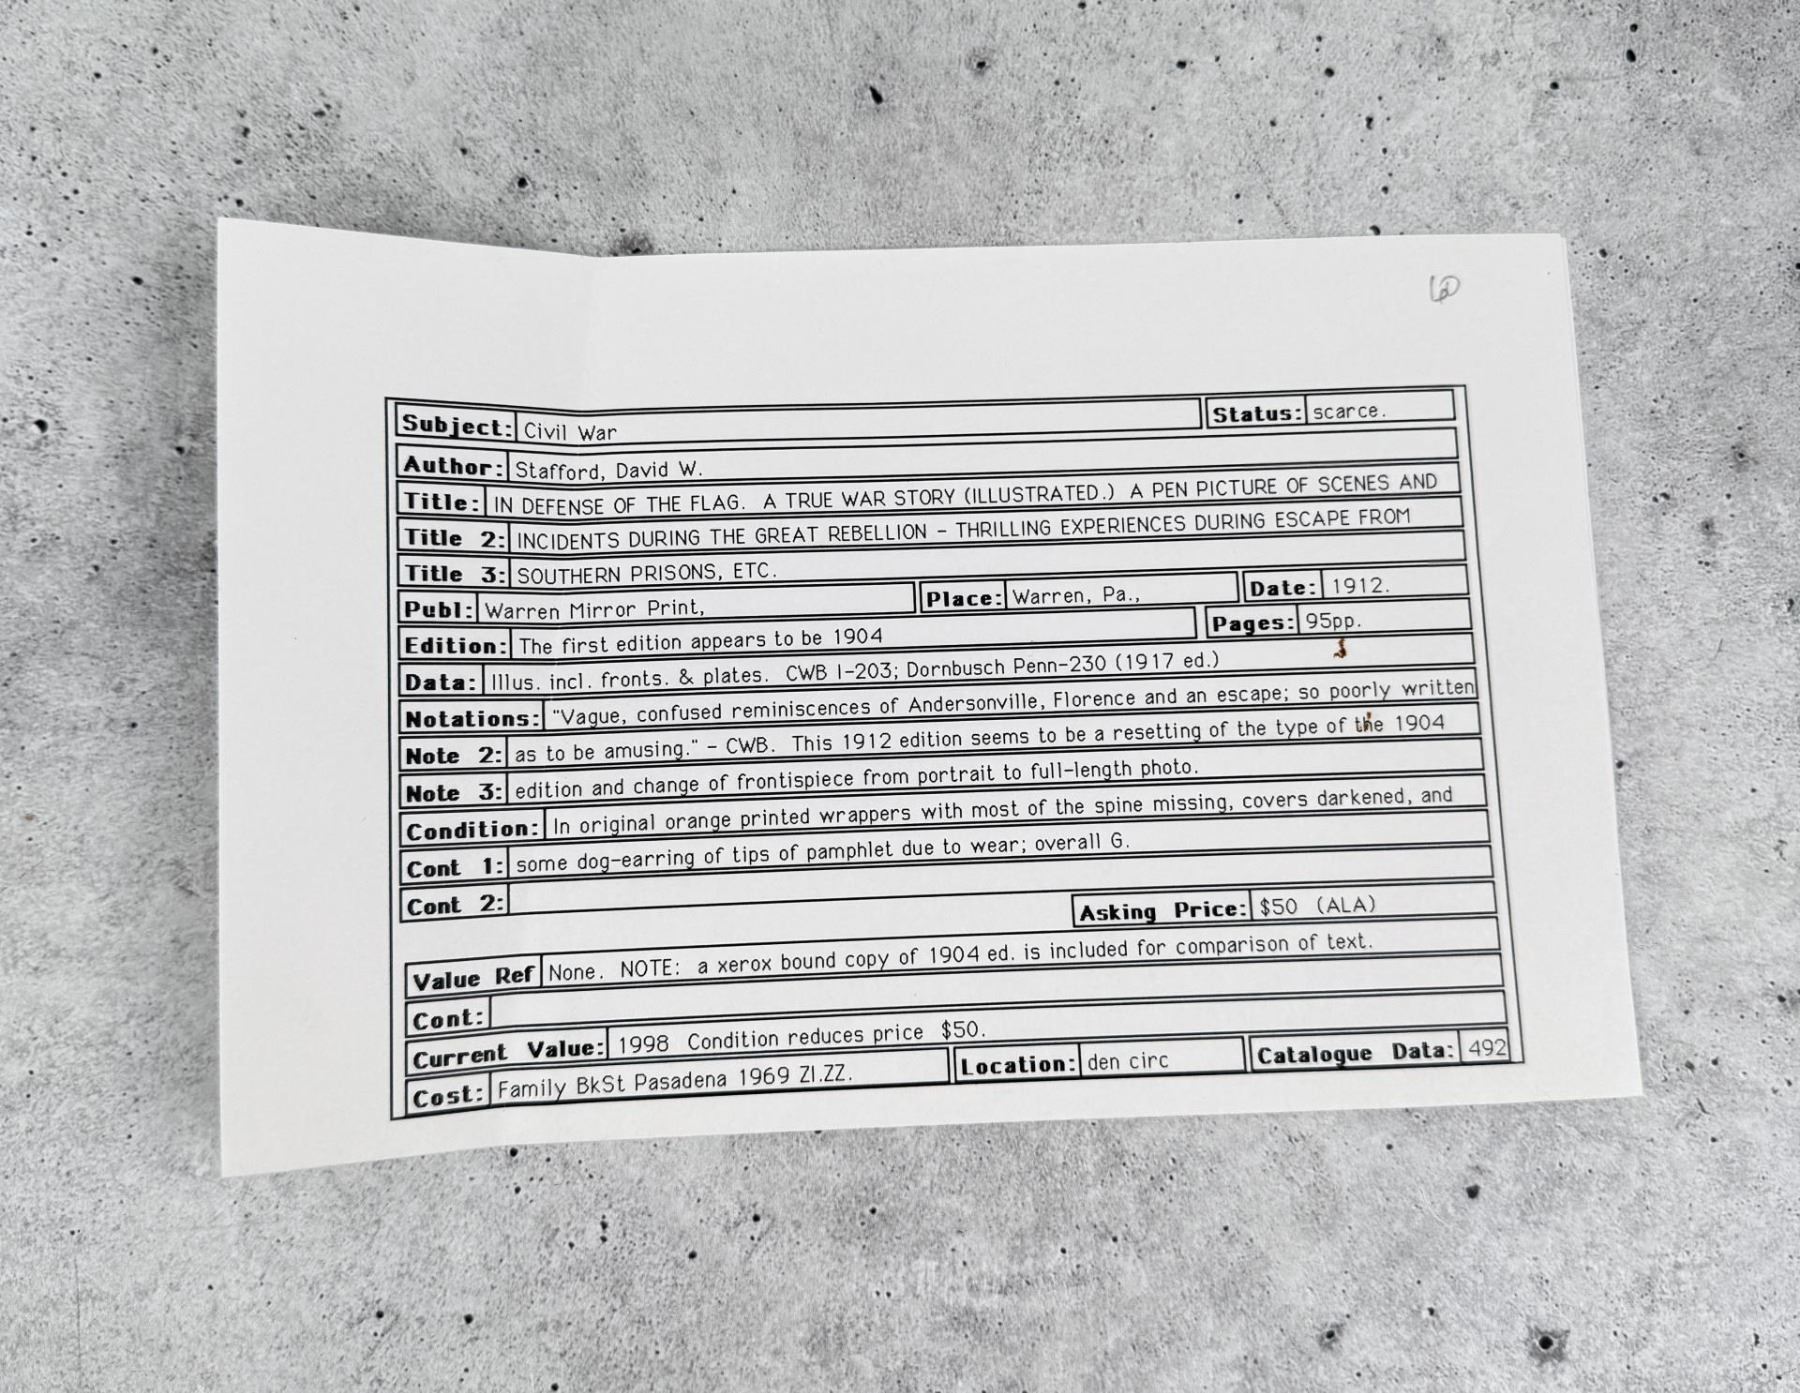 Subject: Civil War Status: scarce.
Author: Stafford, David W.
Title: IN DEFENSE OF THE FLAG. A TRUE WAR STORY (ILLUSTRATED.) A PEN PICTURE OF SCENES AND
Title 2: INCIDENTS DURING THE GREAT REBELLION - THRILLING EXPERIENCES DURING ESCAPE FROM
Title 3: SOUTHERN PRISONS, ETC.
Publ: Warren Mirror Print, Place: Warren, Pa., Date: 1912.
Edition: The first edition appears to be 1904 Pages: 95pp.
Data: Illus. incl. fronts. & plates. CWB I-203; Dornbusch Penn-230 (1917 ed.)
Notations: "Vague, confused reminiscences of Andersonville, Florence and an escape; so poorly written
Note 2: as to be amusing." - CWB. This 1912 edition seems to be a resetting of the type of the 1904
Note 3: edition and change of frontispiece from portrait to full-length photo.
Condition: In original orange printed wrappers with most of the spine missing, covers darkened, and
Cont 1: some dog-earring of tips of pamphlet due to wear; overall G.
Cont 2:
Asking Price: $50 (ALA)
Value Ref None. NOTE: a xerox bound copy of 1904 ed. is included for comparison of text.
Cont:
Current Value: 1998 Condition reduces price $50.
Cost: Family BkSt Pasadena 1969 ZI.ZZ. Location: den circ Catalogue Data: 492